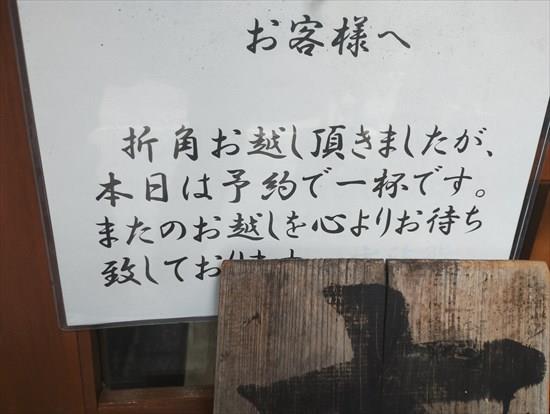 お客様へ
折角お越し頂きましたが、
本日は予約で一杯です。
またのお越しを心よりお待ち
致しております